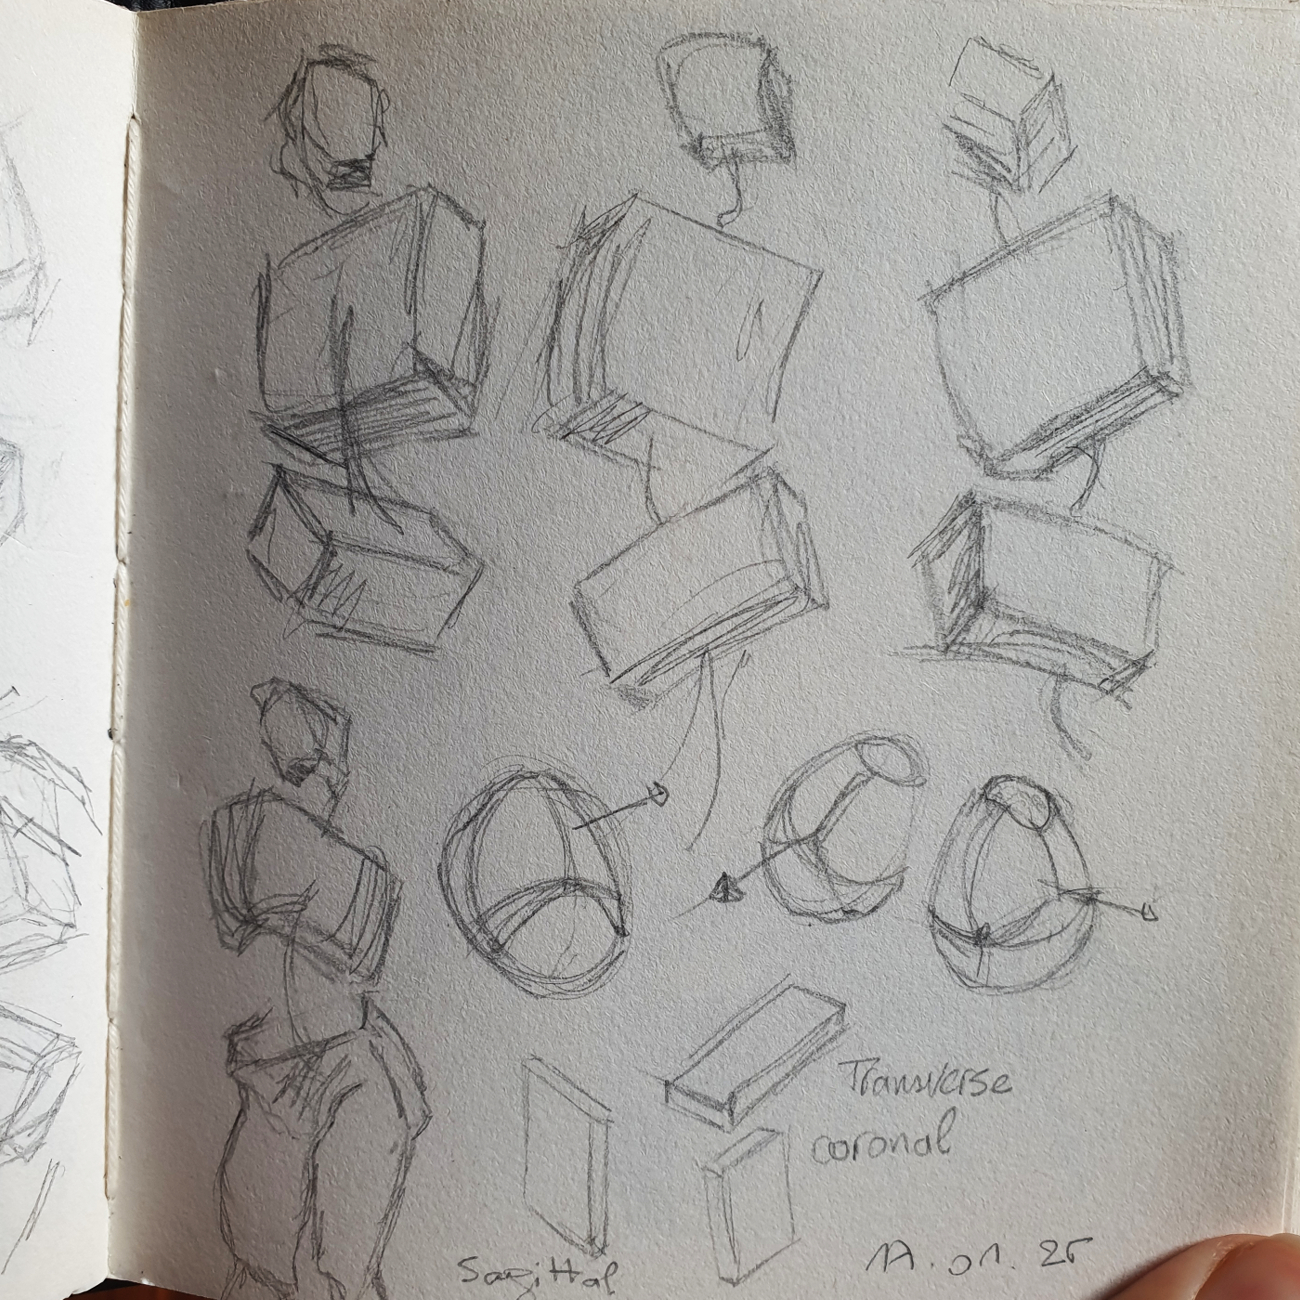 Transverse
coronal
Sagittal
17.01.25